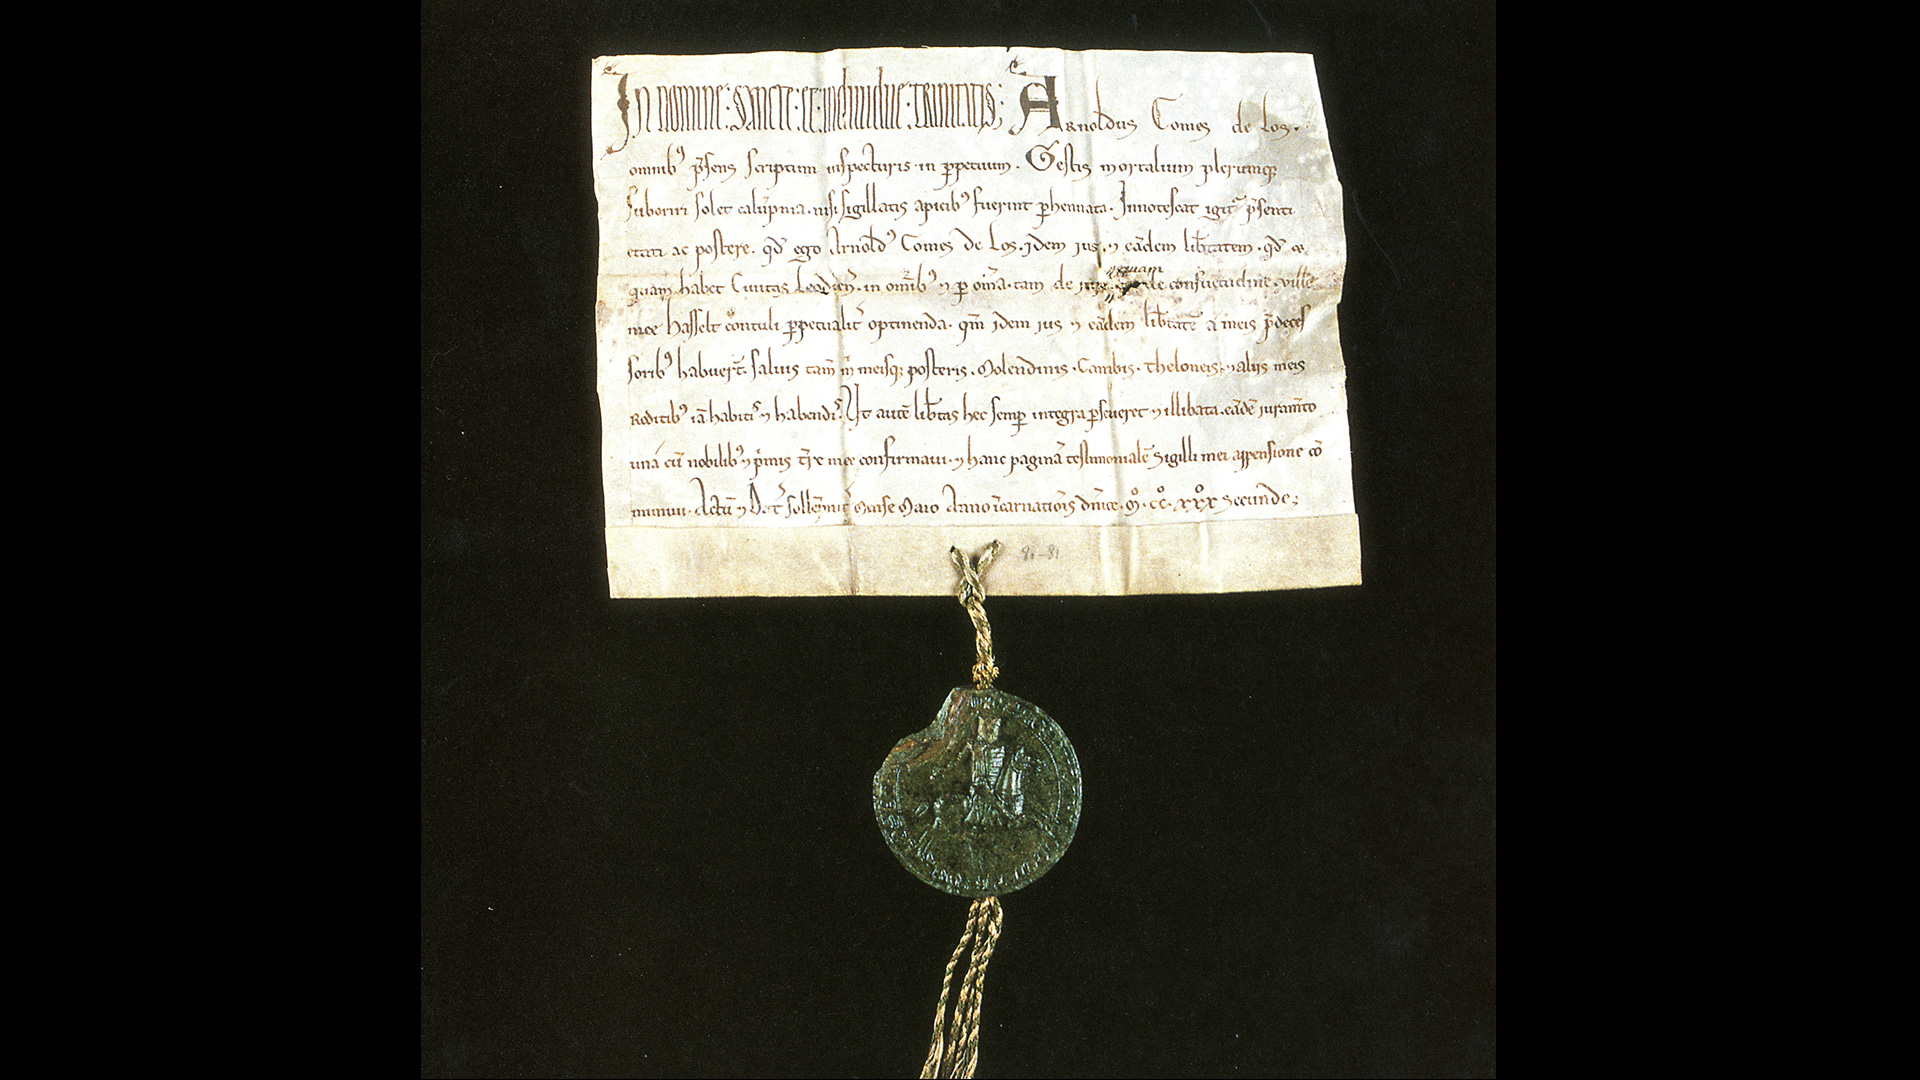 In nomine : sancte : et : individue : trinitatis ; Arnoldus Comes de Los .
omnib9 p̄sens scriptum inspecturis in ꝑpetuum . Gestis mortalium plerumq;
suboriri solet calūpnia . nisi sigillatis apicib9 fuerint ꝑhennata . Innotescat igit̄ p̄senti
etati ac postere . qd̄ ego Arnold9 Comes de Los . idem ius . ⁊ eādem lib̄tatem . qd̄
quam habet Civitas Leodien̄ . in om̄ib9 ⁊ ꝑ om̄ia . tam de iure quam de consuetudine . ville
mee Hasselt contuli ꝑpetualit̄ optinenda . qm̄ idem ius ⁊ eādem lib̄tatē a meis p̄deces
sorib9 habuer̄t . salvis tam̄ m̄ meisq; posteris . Molendinis . Cambis . Theloneis . ⁊ aliis meis
Reditib9 iā habitis ⁊ habendis . Ut autē lib̄tas hec semꝑ integra ꝑseveret ⁊ illibata . eādē iuram̄to
una cū nobilib9 ⁊ p̄mis t̄re mee confirmavi . ⁊ hanc paginā testimonialē sigilli mei appensione cō
munivi . Actū ⁊ Dat̄ sollēpnit̄ Mense Maio Anno īcarnatiōis dn̄ice . Mº . ccº . xxxº Secundo ;
81-81